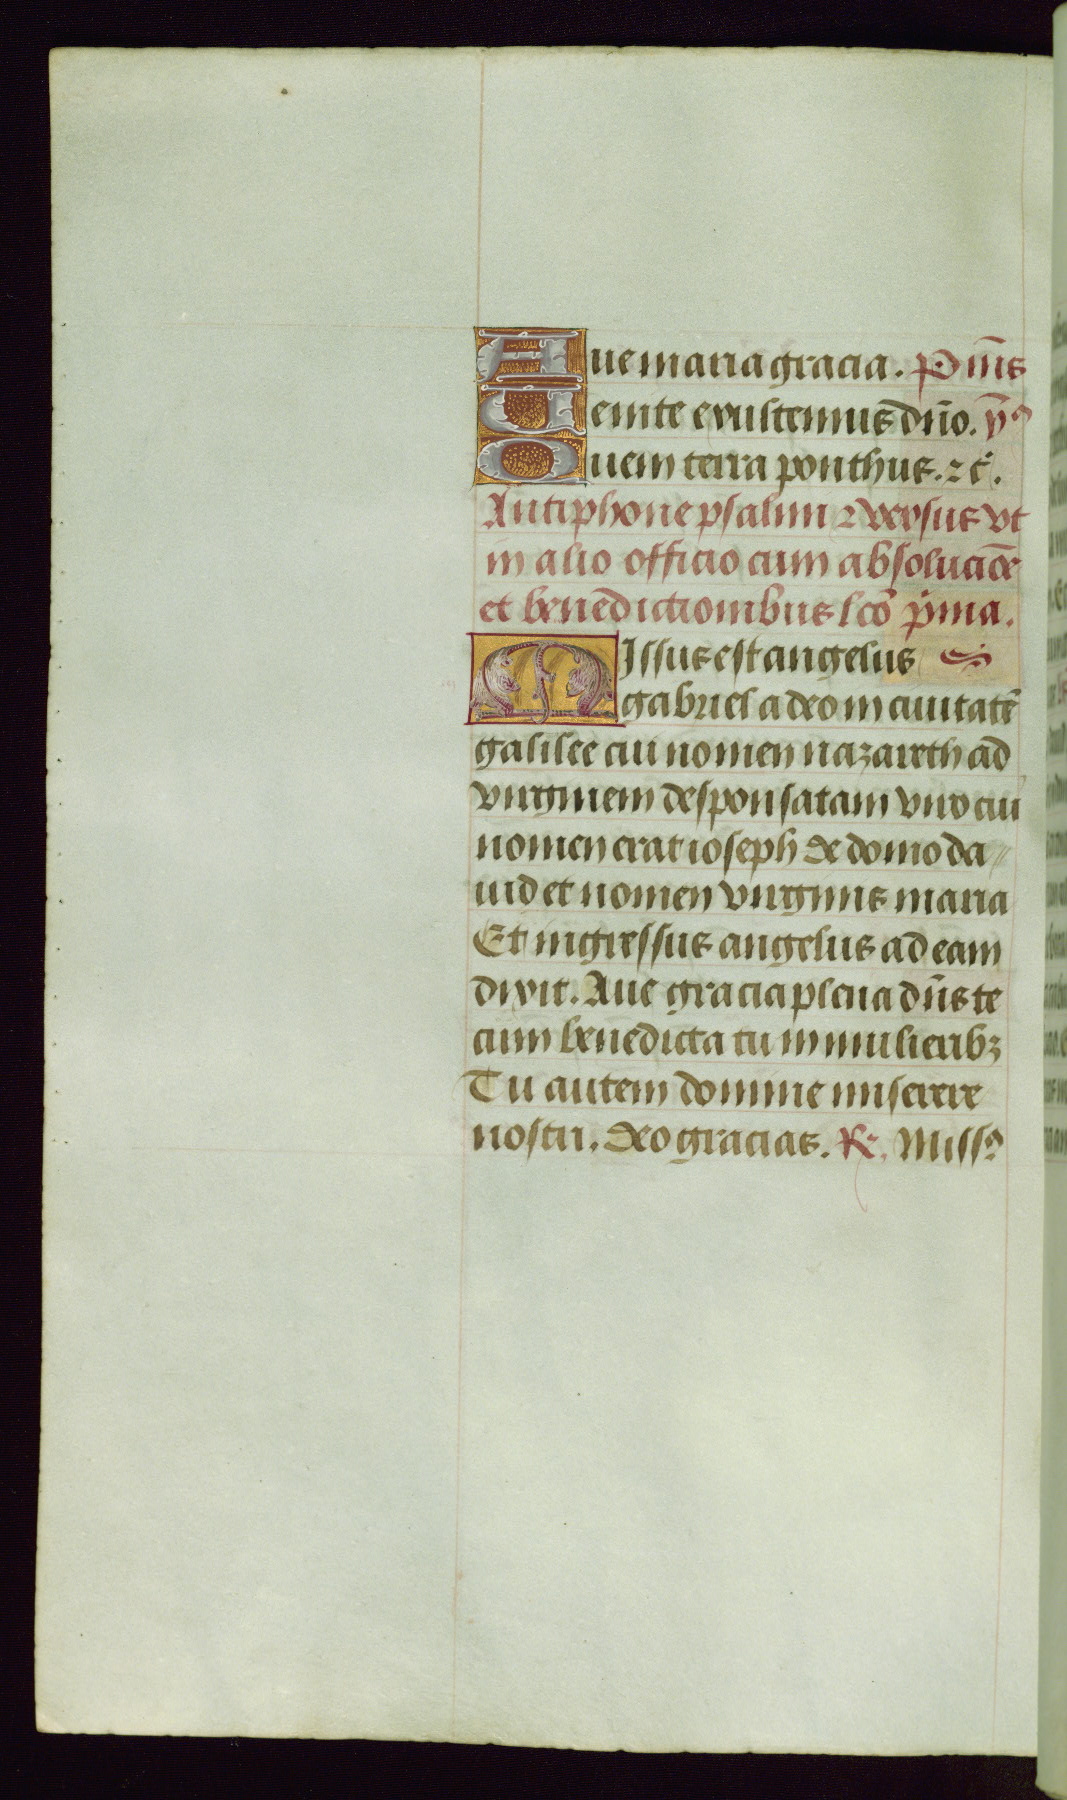 Aue maria gracia. Pm̄s
Uenite exultemus dn̄o. ymꝰ
Quem terra ponthus. ⁊ c̄.
Antiphone psalmi ⁊ versus vt
in alio officio cum absolucōe
et benedictionibus lcō p̄ma.
Missus est angelus
gabriel a deo in ciuitatē
galilee cui nomen nazareth ad
virginem desponsatam viro cui
nomen erat ioseph de domo da
uid et nomen virginis maria
Et ingressus angelus ad eam
dixit. Aue gracia plena dn̄s te
cum benedicta tu in mulieribꝫ
Tu autem domine miserere
nostri. deo gracias. R. Missꝰ